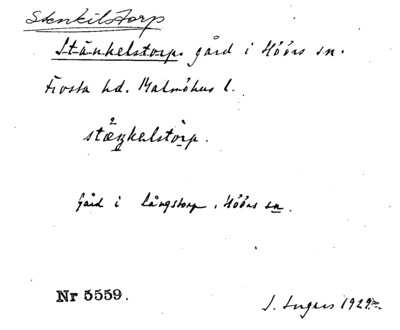 Stenkilstorp
Stänkelstorp. gård i Höörs sn.
Frosta hd. Malmöhus l.
stæŋkelstorp.
Gård i Långstorp, Höörs sn.
Nr 5559.
I. Ingers 1929.